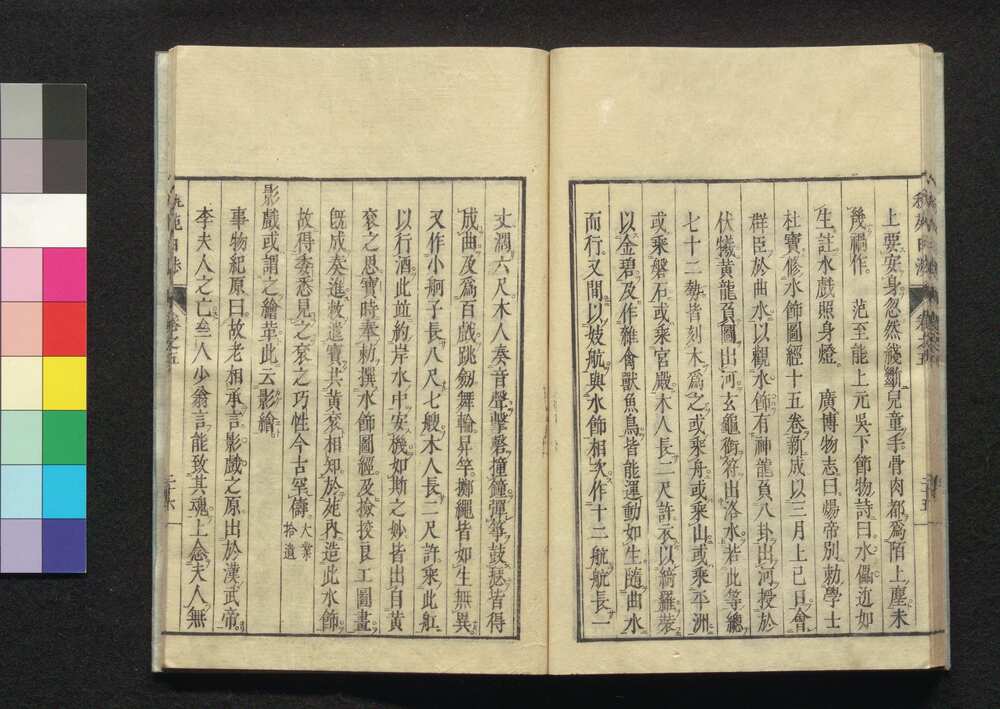 上要安身忽然綫斷兒童手骨肉都爲陌上塵未
幾禍作。　范至能上元吳下節物詩曰水儡近如
生註水戲照身燈。　廣博物志曰煬帝別勅學士
杜寶修水飾圖經十五卷新成以三月上巳日會
群臣於曲水以觀水飾有神龍負八卦出河授於
伏犧黄龍負圖出河玄龜銜符出洛水若此等總
七十二勢皆刻木爲之或乘舟或乘山或乘平洲
或乘磐石或乘宮殿木人長二尺許衣以綺羅裝
以金碧及作雜禽獸魚鳥皆能運動如生隨曲水
而行又間以妓航與水飾相次作十二航航長一
丈濶六尺木人奏音聲擊磬撞鐘彈筝鼓瑟皆得
成曲及爲百戲跳劔舞輪昇竿擲繩皆如生無異
又作小舸子長八尺七艘木人長二尺許乘此舡
以行酒此竝約岸水中安機如斯之妙皆出自黄
衮之思寶時奉勅撰水飾圖經及撿挍良工圖畫
既成奏進敕遣寶共黄衮相知於苑内造此水飾
故得委悉見之衮之巧性今古罕儔大業拾遺
影戲或謂之繪革此云影繪
事物紀原曰故老相承言影戲之原出於漢武帝
李夫人之亡亝人少翁言能致其魂上念夫人無